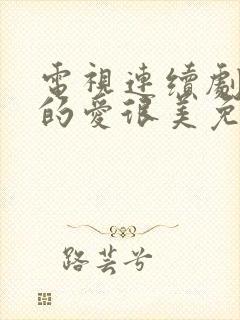 電視連續劇
的愛很美免
路芸兮